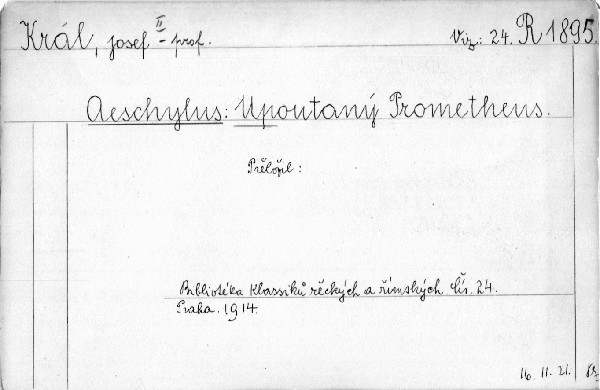 Král, Josef II – prof. Viz: 24. R 1895.
Aeschylus: Upoutaný Prometheus.
Přeložil:
Bibliotéka klassiků řeckých a římských čís. 24.
Praha. 1914.
16. II. 21.